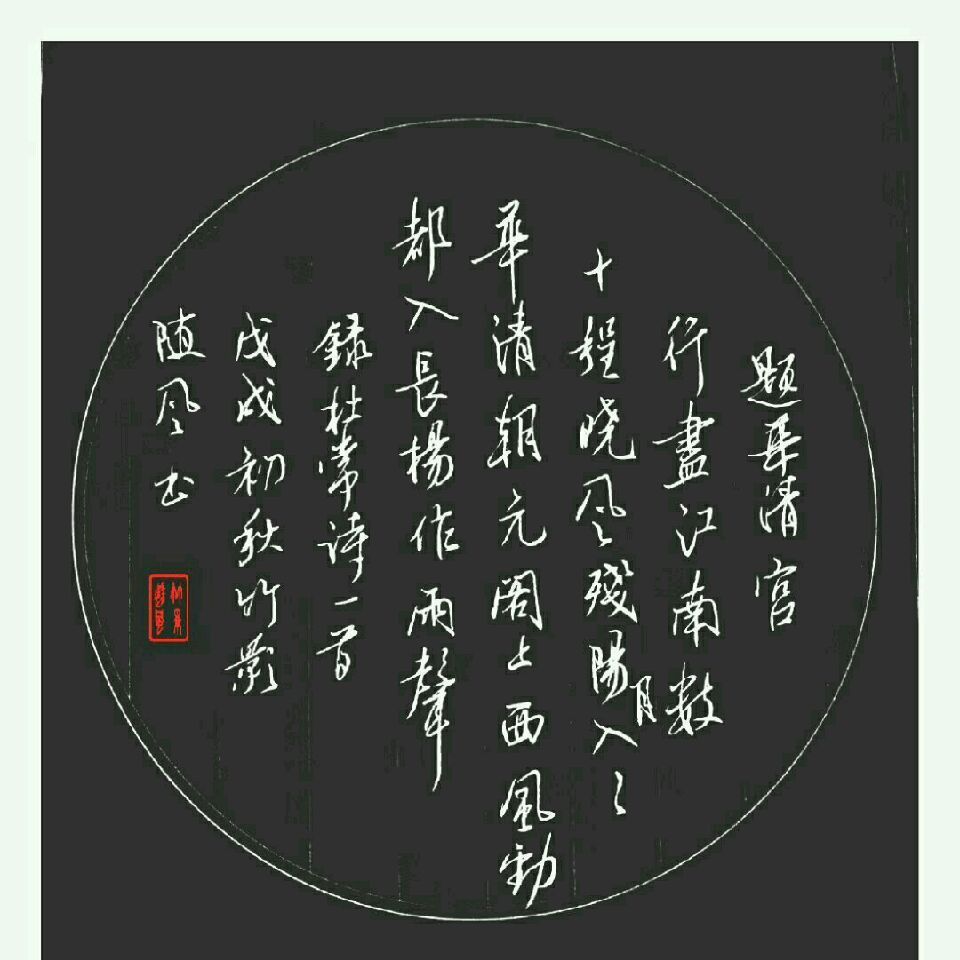 題華清宮
行盡江南數
十程晓风殘陽入〻
月
華清朝元閣上西風動
都入長楊作雨聲
録杜常诗一首
戊戌初秋竹影
随风书